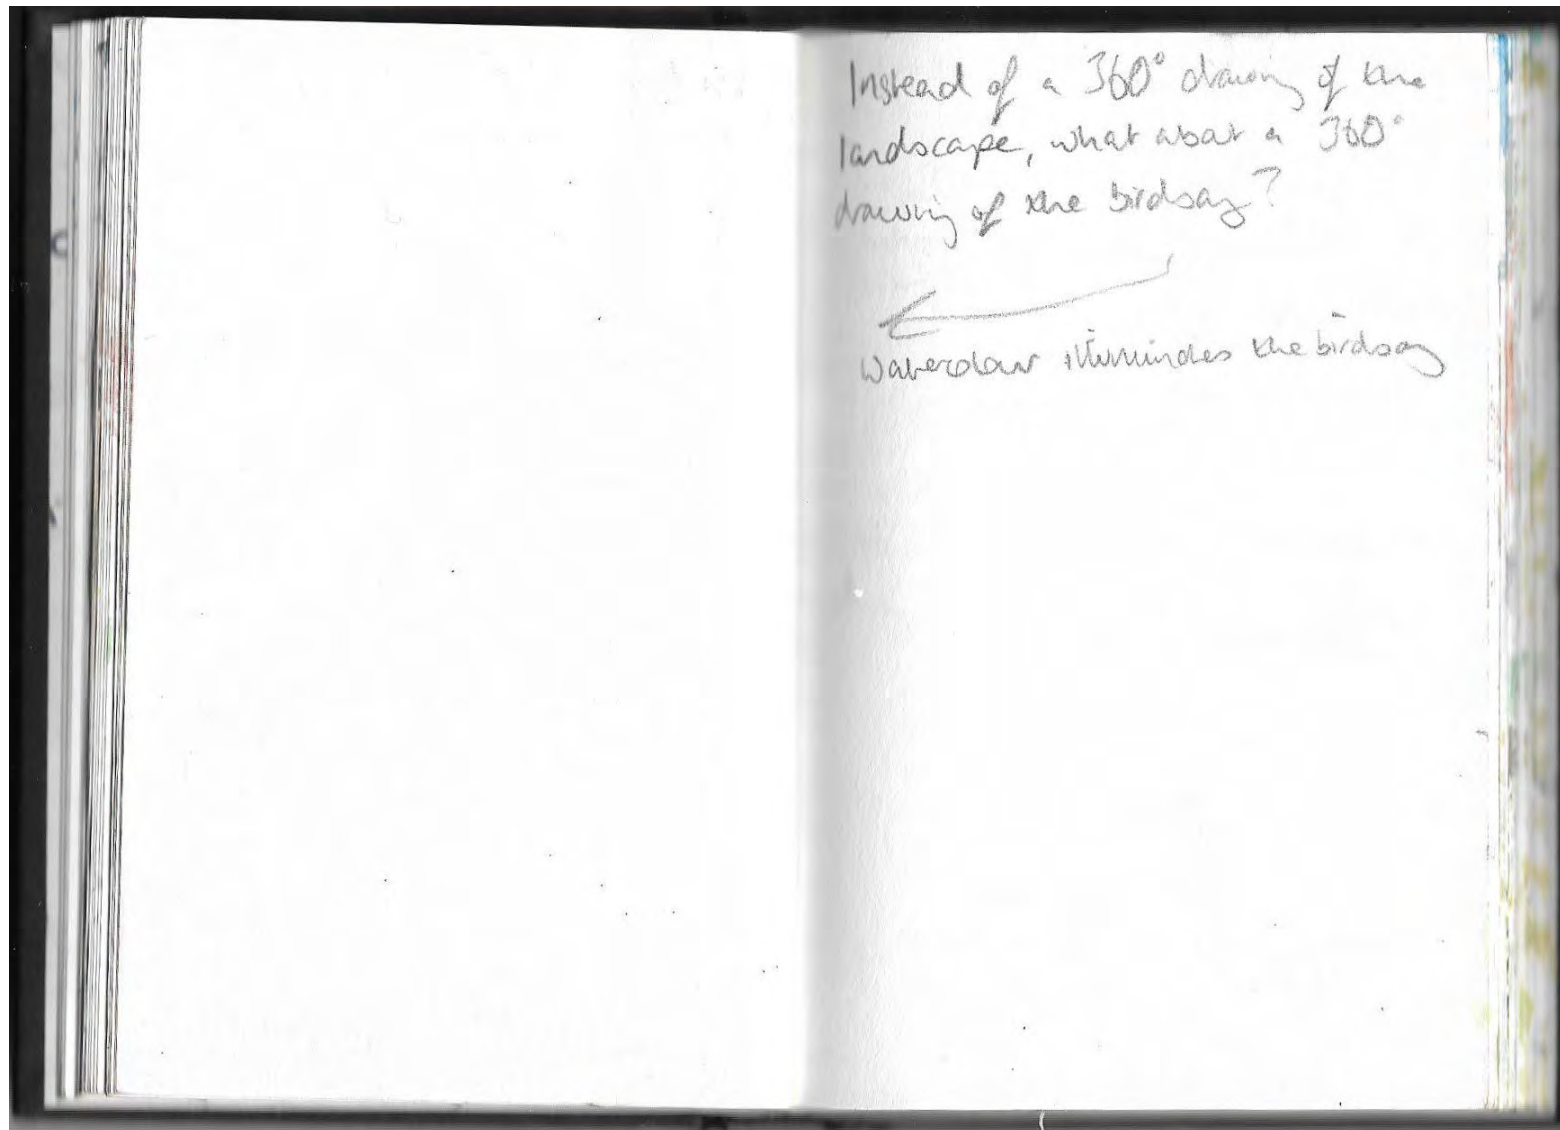 Instead of a 360° drawing of the
landscape, what about a 360°
drawing of the birdsong?
Watercolour illuminates the birdsong